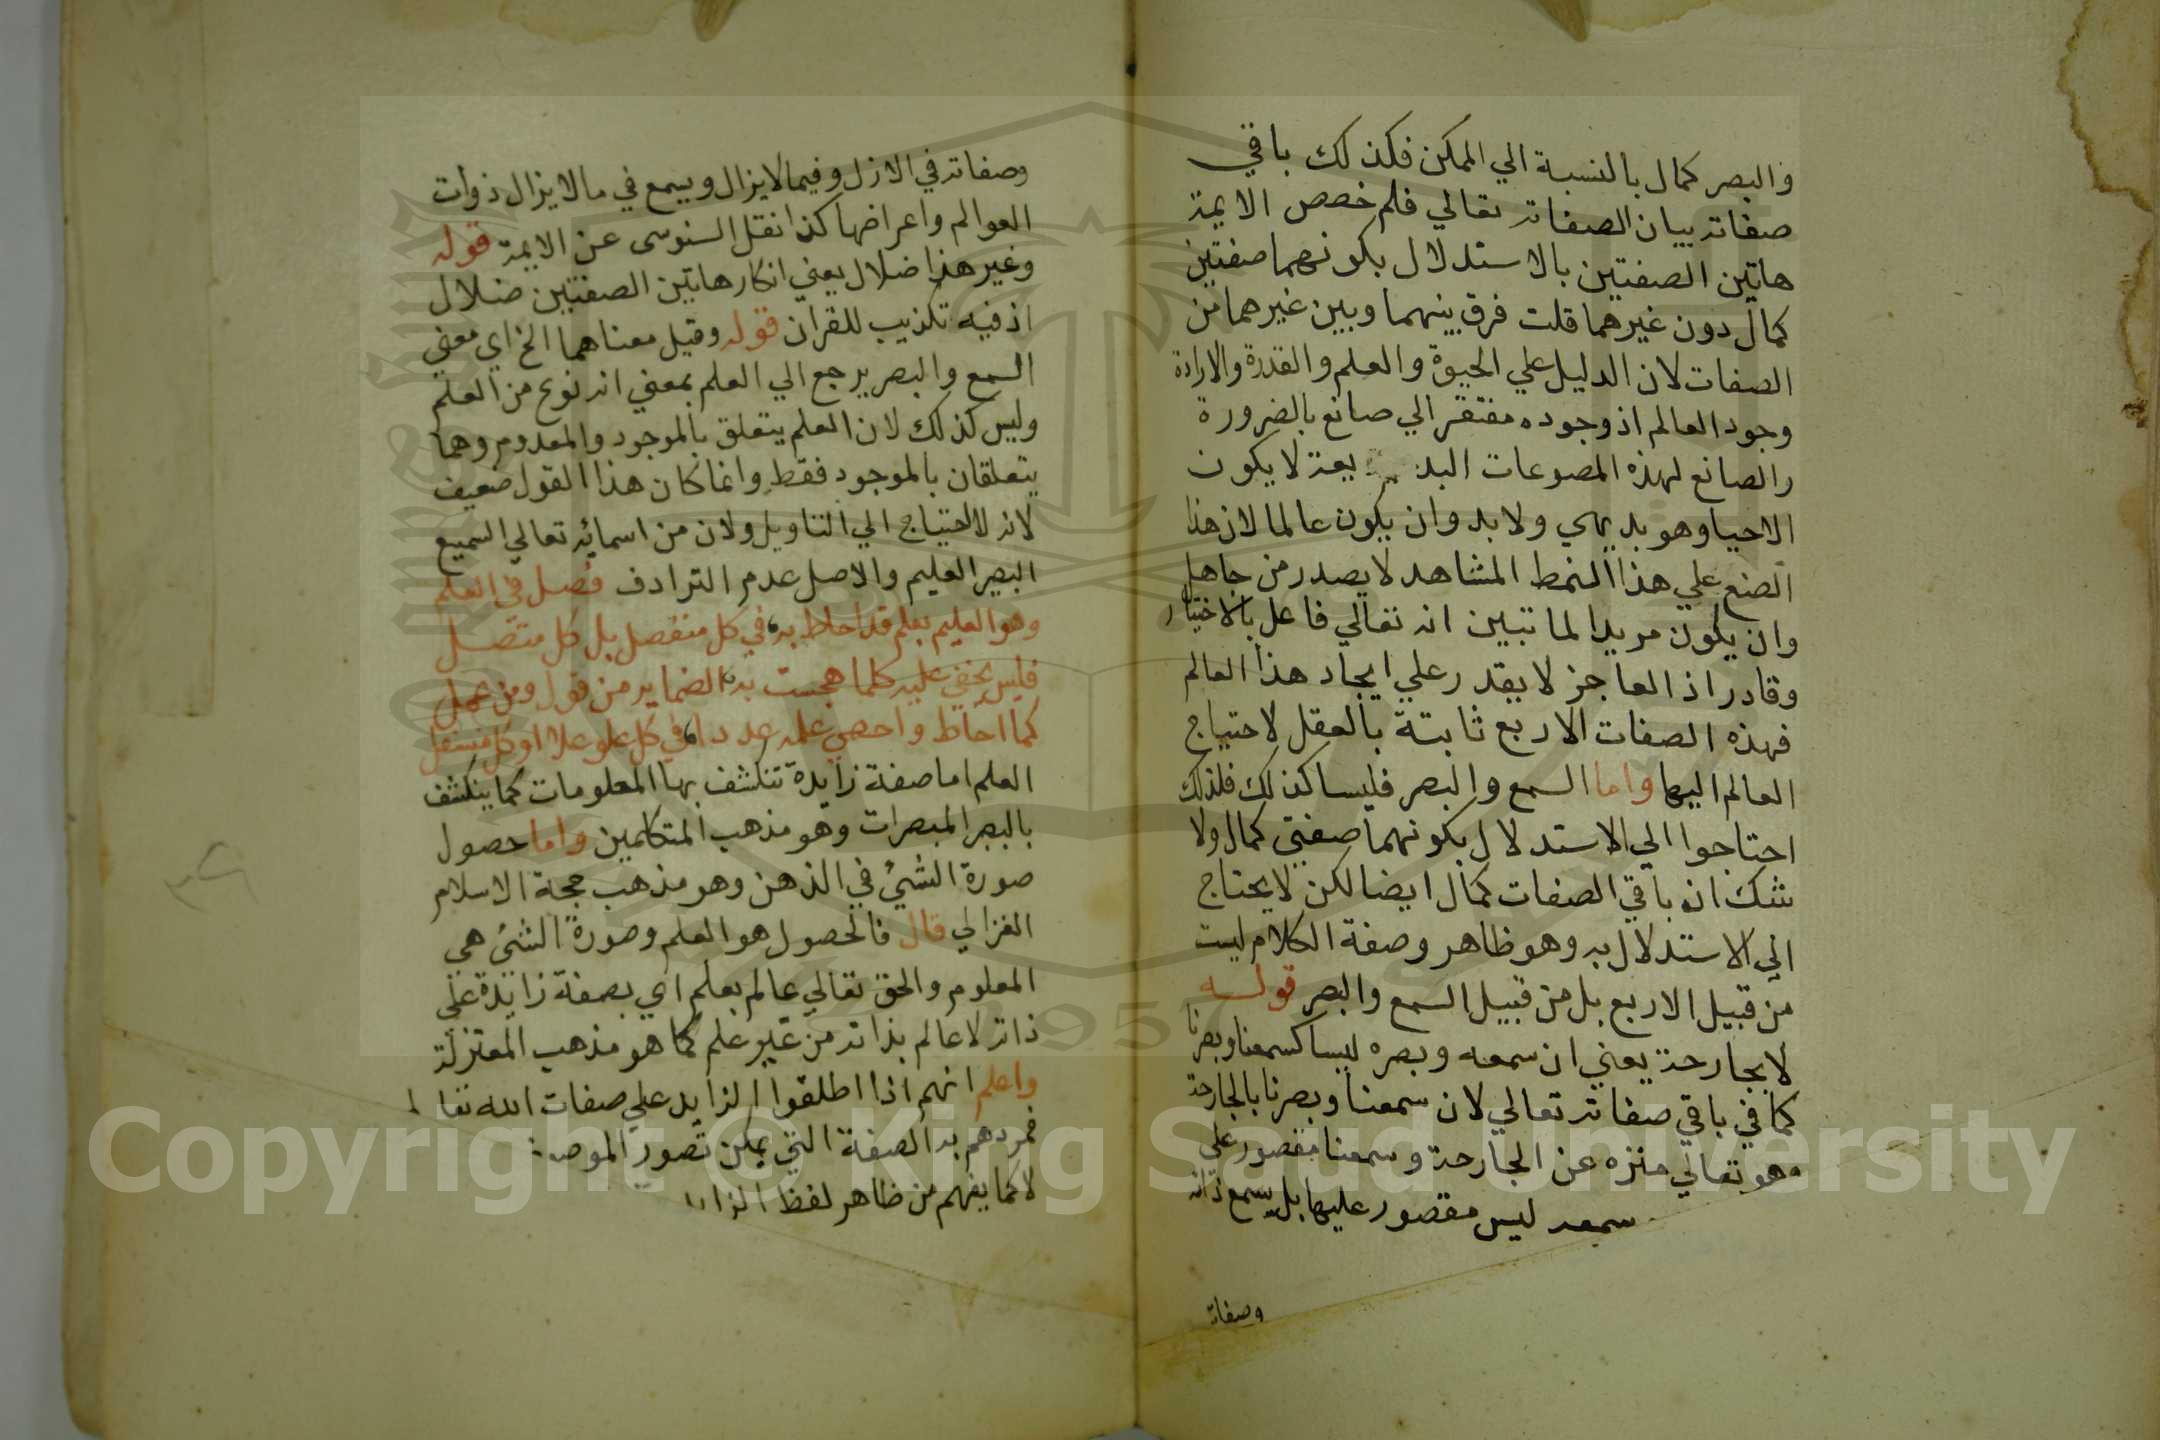 والبصر كمال بالنسبة الي الممكن فكذلك باقي
صفاته بيان الصفاته تعالي فلم خصص الايمة
هاتين الصفتين بالاستدلال بكونهما صفتين
كمال دون غيرهما قلت فرق بينهما وبين غيرهما من
الصفات لان الدليل علي الحيوة والعلم والقدرة والارادة
وجود العالم اذ وجوده مفتقر الي صانع بالضرورة
والصانع لهذه المصوعات البديعة لا يكون
الاحيا وهو بديهي ولا بد وان يكون عالما لان هذا
الصنع علي هذا النمط المشاهد لا يصدر من جاهل
وان يكون مريدا لما تبين انه تعالي فاعل بالاختيار
وقادر اذ العاجز لا يقدر علي ايجاد هذا العالم
فهذه الصفات الاربع ثابتة بالعقل لاحتياج
العالم اليها واما السمع والبصر فليسا كذلك فلذلك
احتاجوا الي الاستدلال بكونهما صفتي كمال ولا
شك ان باقي الصفات كمال ايضا لكن لا يحتاج
الي الاستدلال به وهو ظاهر وصفة الكلام ليست
من قبيل الاربع بل من قبيل السمع والبصر قوله
لا بجارحة يعني ان سمعه وبصره ليسا كسمعنا وبصرنا
كما في باقي صفاته تعالي لان سمعنا وبصرنا بالجارحة
وهو تعالي منزه عن الجارحة وسمعنا مقصور علي
سمعه ليس مقصور عليها بل يسمع ذاته
وصفاته
وصفاته في الازل وفيما لا يزال ويسمع في ما لا يزال ذوات
العوالم واعراضها كذا نقل السنوسى عن الايمة قوله
وغير هذا ضلال يعني انكار هاتين الصفتين ضلال
اذ فيه تكذيب للقران قوله وقيل معناهما الخ اي معني
السمع والبصر يرجع الي العلم بمعني انه نوع من العلم
وليس كذلك لان العلم يتعلق بالموجود والمعدوم وهما
يتعلقان بالموجود فقط وانما كان هذا القول ضعيف
لانه لا احتياج الي التاويل ولان من اسمائه تعالي السميع
البصير العليم والاصل عدم الترادف فصل في العلم
وهو العليم بعلم قد احاط به في كل منفصل بل كل متصل
فليس يخفي عليه كلما هجست به الضماير من قول ومن عمل
كما احاط واحصي علمه عددا في كل علو علا او كل مستفل
العلم اما صفة زايدة تنكشف بها المعلومات كما ينكشف
بالبصر المبصرات وهو مذهب المتكلمين واما حصول
صورة الشيئ في الذهن وهو مذهب حجة الاسلام
الغزالي قال فالحصول هو العلم وصورة الشئ هي
المعلوم والحق تعالي عالم بعلم اي بصفة زايدة علي
ذاته لا عالم بذاته من غير علم كما هو مذهب المعتزلة
واعلم انهم اذا اطلقوا الزايد علي صفات الله تعا
فمردهم به الصفة التي يمكن تصور
لا كما يفهم من ظاهر لفظ
Copyright © King Saud University
1957